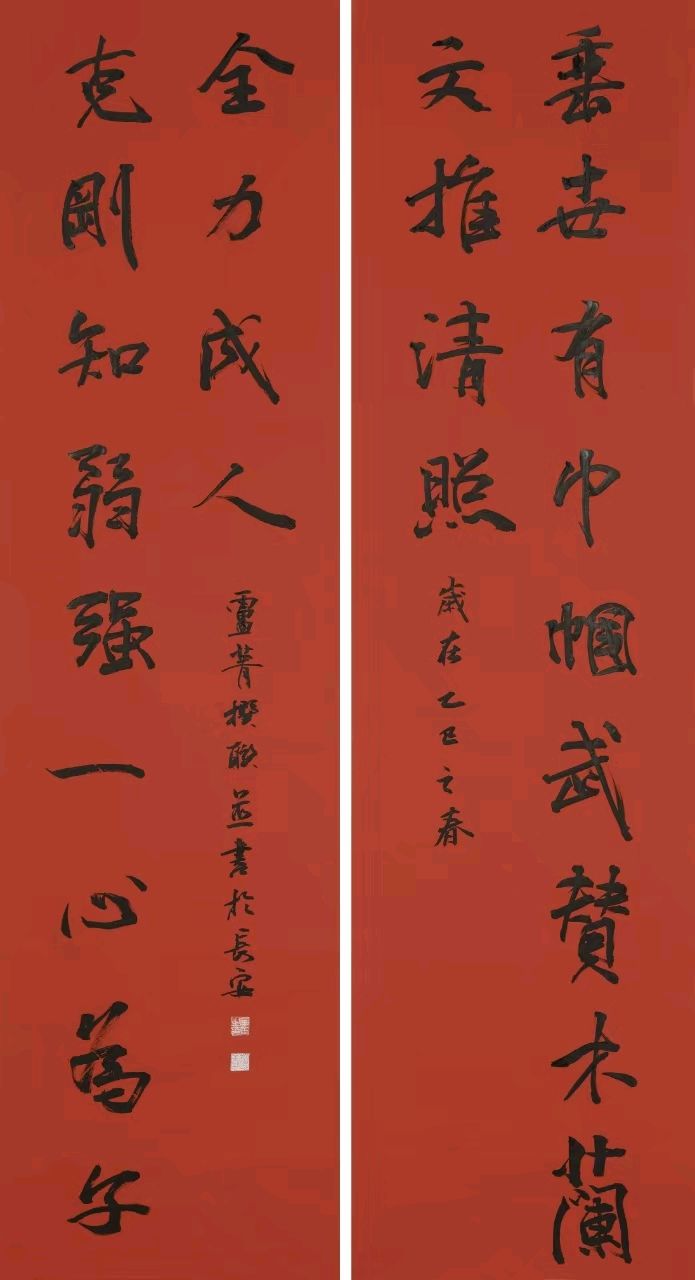 垂世有巾幗武賛木蘭
文推清照
歲在乙巳之春
克剛知弱强一心為子
全力成人
盧菁撰聯並書於長安